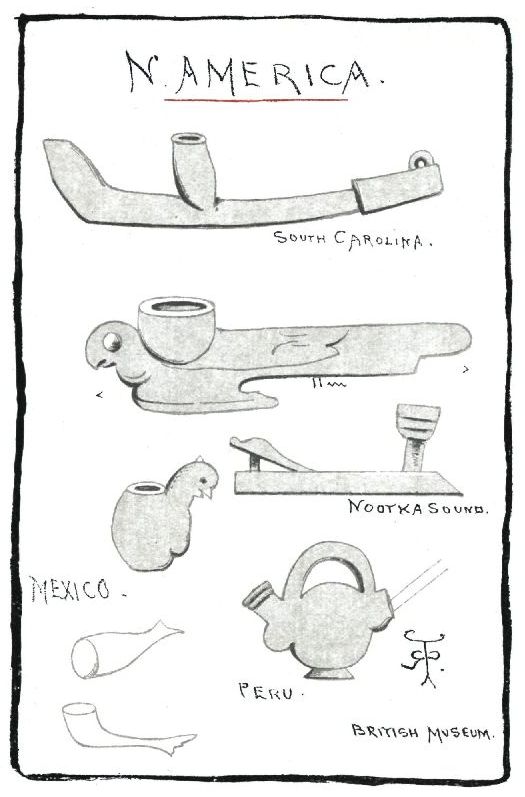 N. AMERICA.
SOUTH CAROLINA.
NOOTKA SOUND.
MEXICO.
PERU.
BRITISH MUSEUM.